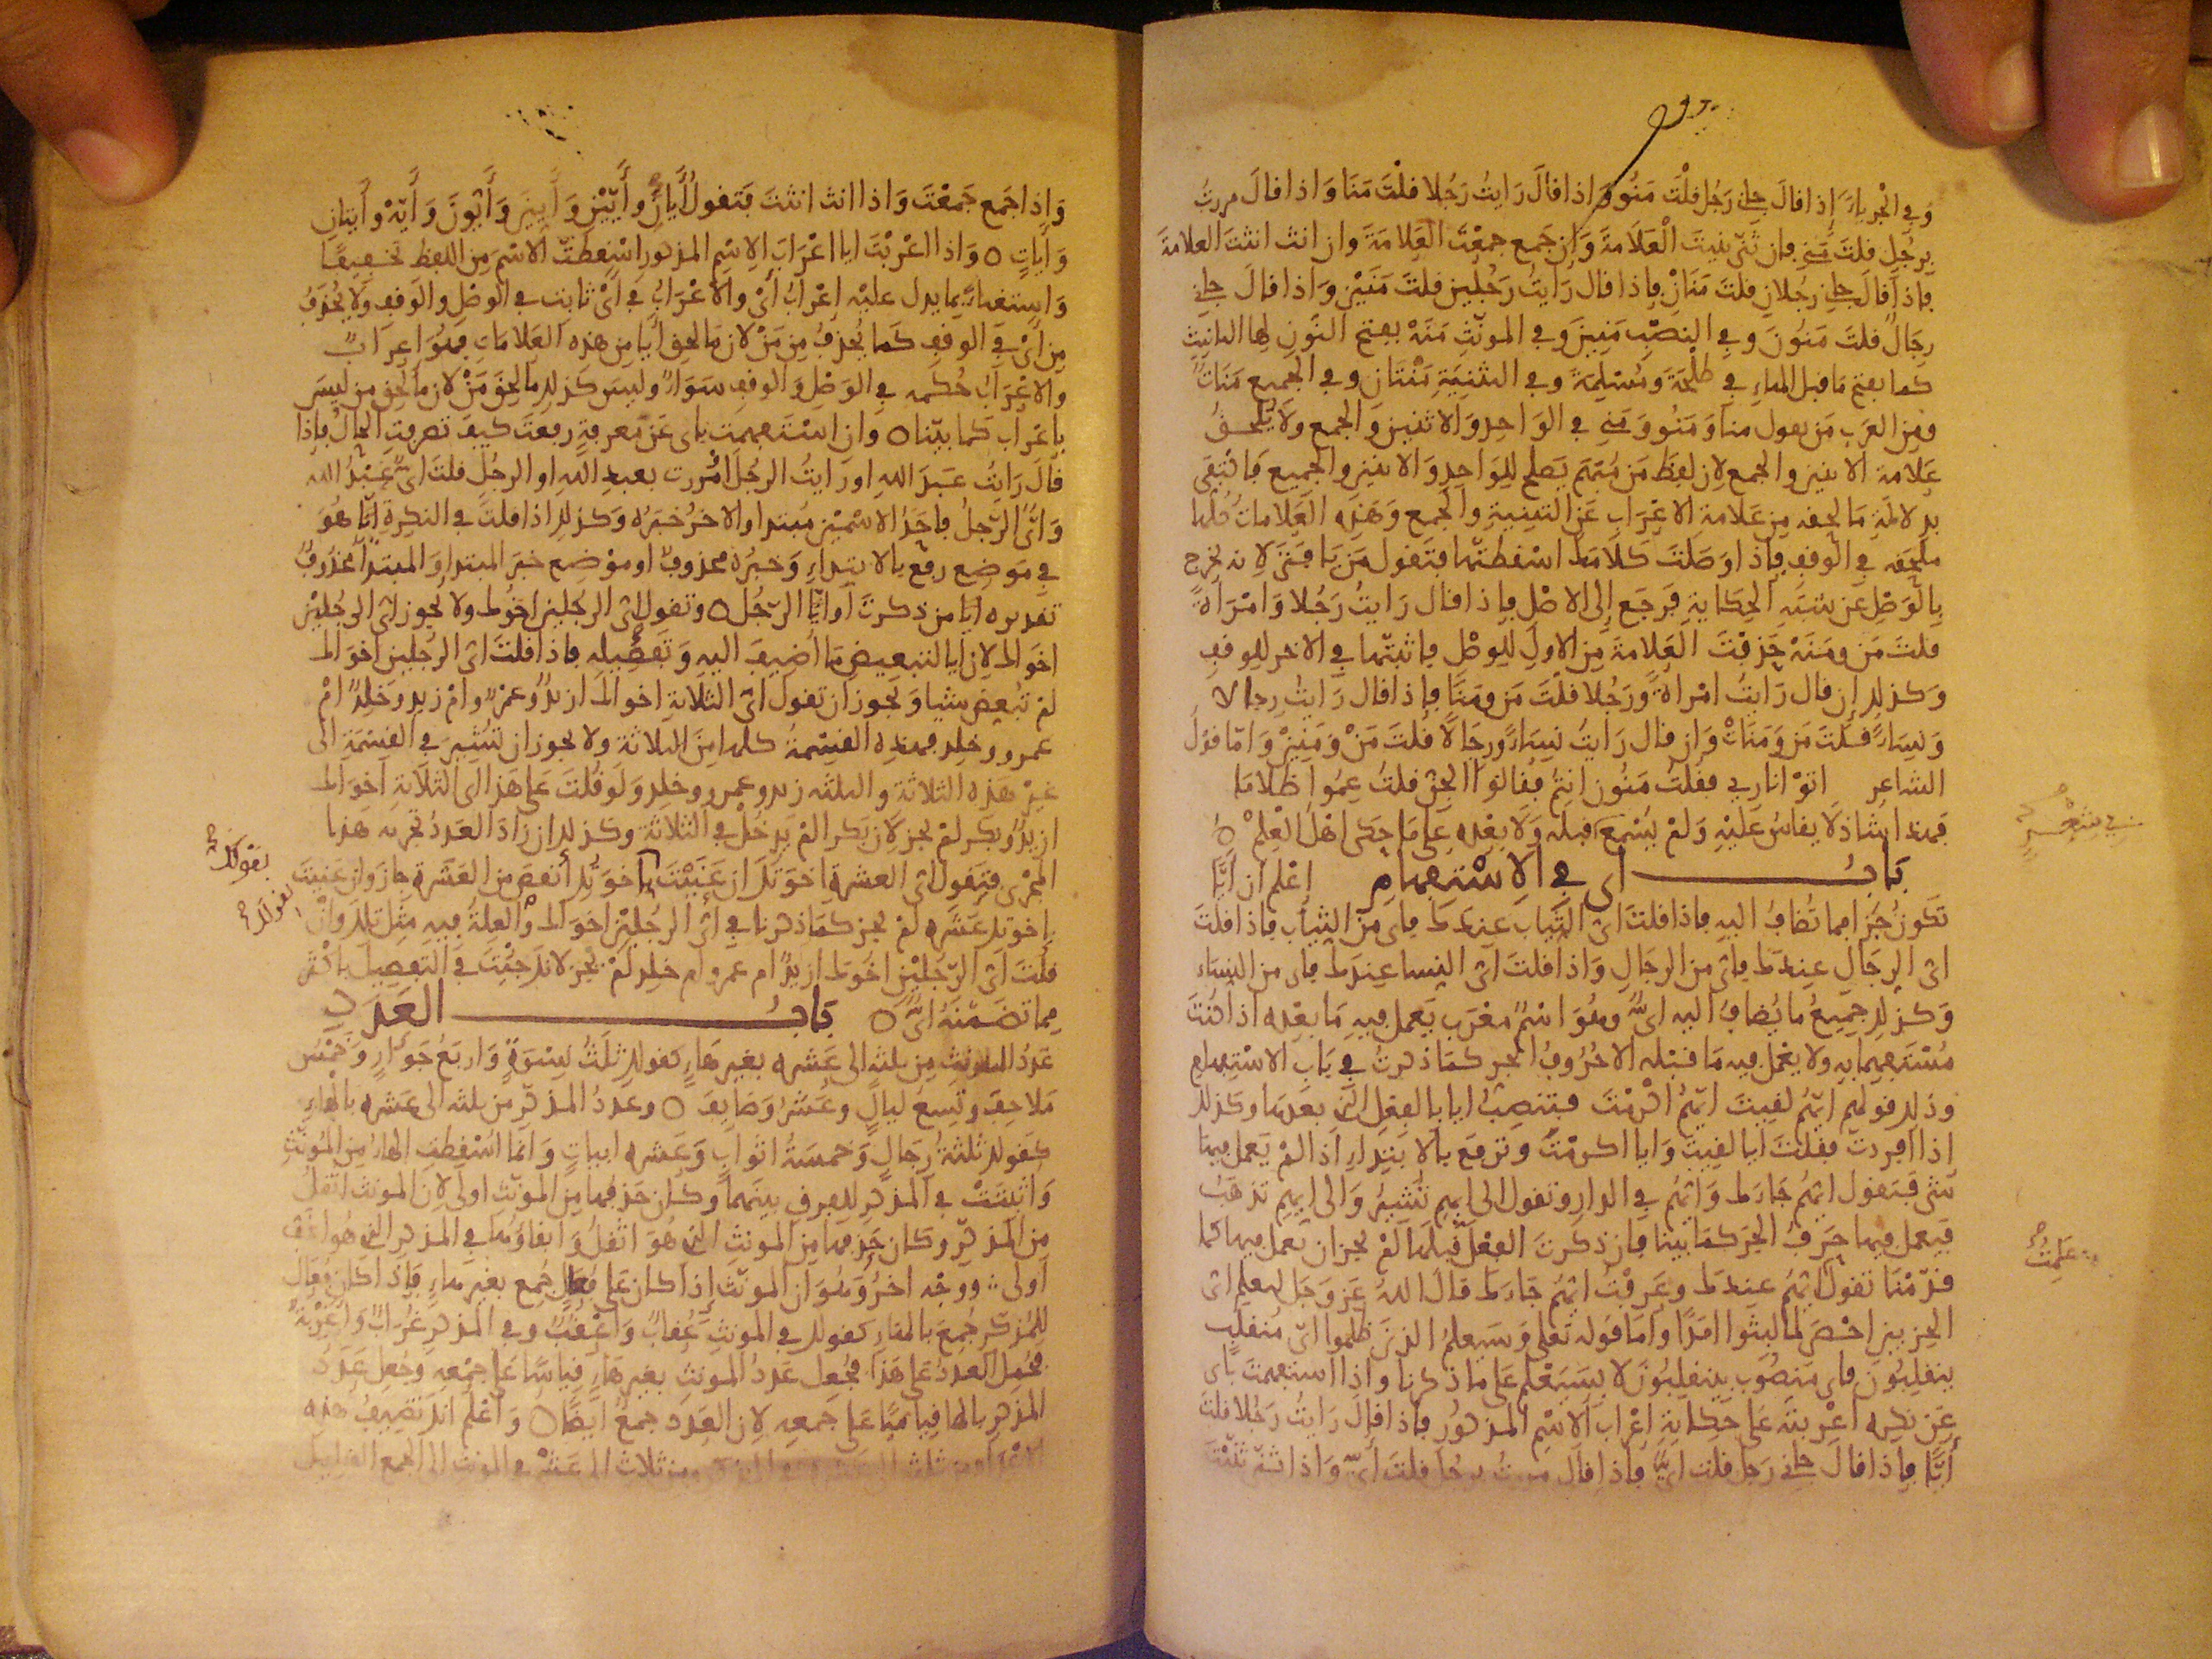 وفي الجر ياء إذا قال جاني رجل قلت منو وإذا قال رايت رجلا قلت منا وإذا قال مررت
برجل قلت مني فإن ثنى ثنيت العلامة وإن جمع جمعت العلامة وإن انث انثت العلامة
فإذا قال جاني رجلان قلت منان فإذا قال رايت رجلين قلت منين وإذا قال جاني
رجال قلت منون وفي النصب منين وفي المونث منه بفتح النون لها التانيث
كما يفتح ما قبل الهاء في طلحة ومسلمة وفي التثنية منتان وفي الجميع منات
ومن العرب من يقول منا ومنو ومني في الواحد والاثنين والجمع ولا يلحق
علامة الاثنين والجمع لان لفظ من مبهم يصلح للواحد والاثنين والجميع فاكتفى
بدلالة ما لحقه من علامة الاعراب عن التثنية والجمع وهذه العلامات كلها
ملحقه في الوقف فإذا وصلت كلامك اسقطتها فتقول من يا فتى لانه خرج
بالوصل عن شبه الحكاية فرجع إلى الاصل فإذا قال رايت رجلا وامراة
قلت من ومنه حذفت العلامة من الاول للوصل واثبتها في الاخر للوقف
وكذلك إن قال رايت امراة ورجلا قلت من ومنا فإذا قال رايت رجالا
ونساء قلت من ومنات وإن قال رايت نساء ورجالا قلت من ومنين واما قول
الشاعر اتوا ناري فقلت منون انتم فقالوا الجن قلت عموا ظلاما
فهذا شاذ لا يقاس عليه ولم يسمع قبله ولا بعده على ما حكى اهل العلم
في شعر
باب اي في الاستفهام اعلم ان ايا
تكون جزا مما تضاف اليه فإذا قلت اي الثياب عندك فاي من الثياب فإذا قلت
اي الرجال عندك فاي من الرجال وإذا قلت اي النسا عندك فاي من النساء
وكذلك جميع ما يضاف اليه اي وهو اسم معرب يعمل فيه ما بعده إذا كنت
مستفهما به ولا يعمل فيه ما قبله الا حروف الجر كما ذكرت في باب الاستفهام
وذلك قولهم ايهم لقيت ايهم اكرمت فتنصب ايا بالفعل الذي بعدها وكذلك
إذا افردت فقلت ايا لقيت وايا اكرمت وترفع بالابتداء إذا لم يعمل فيها
شي فتقول ايهم جاك وايهم في الدار وتقول الى ايهم تشير والى ايهم تذهب
فيعمل فيها حرف الجر كما بينا فإن ذكرت الفعل قبلها لم يجز ان يعمل فيها كما
علمت
قدمنا تقول ايهم عندك وعرفت ايهم جاك قال الله عز وجل لنعلم اي
الحزبين احصى لما لبثوا امدا واما قوله تعلى وسيعلم الذين ظلموا اي منقلب
ينقلبون فاي منصوب بينقلبون لا بسيعلم على ما ذكرنا وإذا استفهمت باي
عن نكره اعربته على حكاية اعراب الاسم المذكور فإذا قال رايت رجلا قلت
ايا فإذا قال جاني رجل قلت اي فإذا قال مررت برجل قلت اي وإذا ثنى ثنيت
وإذا جمع جمعت وإذا انث انثت فتقول ايان وايين وايين وايون واية وايتان
وايات وإذا اعربت ايا اعراب الاسم المذكور اسقطت الاسم من اللفظ تخفيفا
واستغناء بما يدل عليه اعراب اي والاعراب في اي ثابت في الوصل والوقف ولا يحذف
من اي في الوقف كما يحذف من من لان ما لحق ايا من هذه العلامات فهو اعراب
والاعراب حكمه في الوصل والوقف سواء وليس كذلك ما لحق من لان ما لحق من ليس
باعراب كما بينا وإن استفهمت باي عن معرفة رفعت كيف تصرفت الحال فإذا
قال رايت عبد الله او رايت الرجل امررت بعبد الله او الرجل قلت اي عبد الله
واي الرجل فاحد الاسمين مبتدا والاخر خبره وكذلك إذا قلت في النكرة ايا هو
في موضع رفع بالابتداء وخبره محذوف او موضع خبر المبتدا والمبتدا محذوف
تقديره ايا من ذكرت او ايا الرجل وتقول اي الرجلين اخوك ولا يجوز اي الرجلين
اخواك لان ايا لتبعيض ما اضيف اليه وتفصيله فإذا قلت اي الرجلين اخواك
لم تبعض شيا ويجوز ان تقول اي الثلاثة اخواك ازيد وعمرو ام زيد وخلد ام
عمرو وخلد فهذه القسمة كلها من الثلاثة ولا يجوز ان تشير في القسمة الى
غير هذه الثلاثة والثلثه زيد وعمرو وخلد ولو قلت على هذا اي الثلاثة اخواك
ازيد وبكر لم يجز لان بكرا لم يدخل في الثلاثة وكذلك إن زاد العدد تجريه هذا
بقولك
المجرى فتقول اي العشرة اخوتك إن عنيت باخوتك انقص من العشرة جاز وإن عنيت
بقولك
باخوتك عشره لم يجز كما ذكرنا في اي الرجلين اخواك والعلة فيه مثل تلك وإن
قلت اي الرجلين اخوك ازيد ام عمرو ام خلد لم يجز لانك جيت في التفصيل باكثر
مما تضمنه اي باب العدد
عدد المونث من ثلث الى عشره بغير هاء كقولك ثلث نسوة واربع جوار وخمس
ملاحف وتسع ليال وعشر وصايف وعدد المذكر من ثلثه الى عشره بالهاء
كقولك ثلثة رجال وخمسة اثواب وعشره ابيات وانما اسقطت الهاء من المونث
واثبتت في المذكر للفرق بينهما وكان حذفها من المونث اولى لان المونث اثقل
من المذكر وكان حذفها من المونث الذي هو اثقل وابقاوها في المذكر الذي هو اخف
اولى ووجه اخر وهو ان المونث إذا كان على فعال جمع بغير هاء فإذا كان فعال
للمذكر جمع بالهاء كقولك في المونث عقاب واعقب وفي المذكر غراب واغربة
فحمل العدد على هذا فجعل عدد المونث بغير هاء قياسا على جمعه وجعل عدد
المذكر بالها قياسا على جمعه لان العدد جمع ايضا واعلم انك تضيف هذه